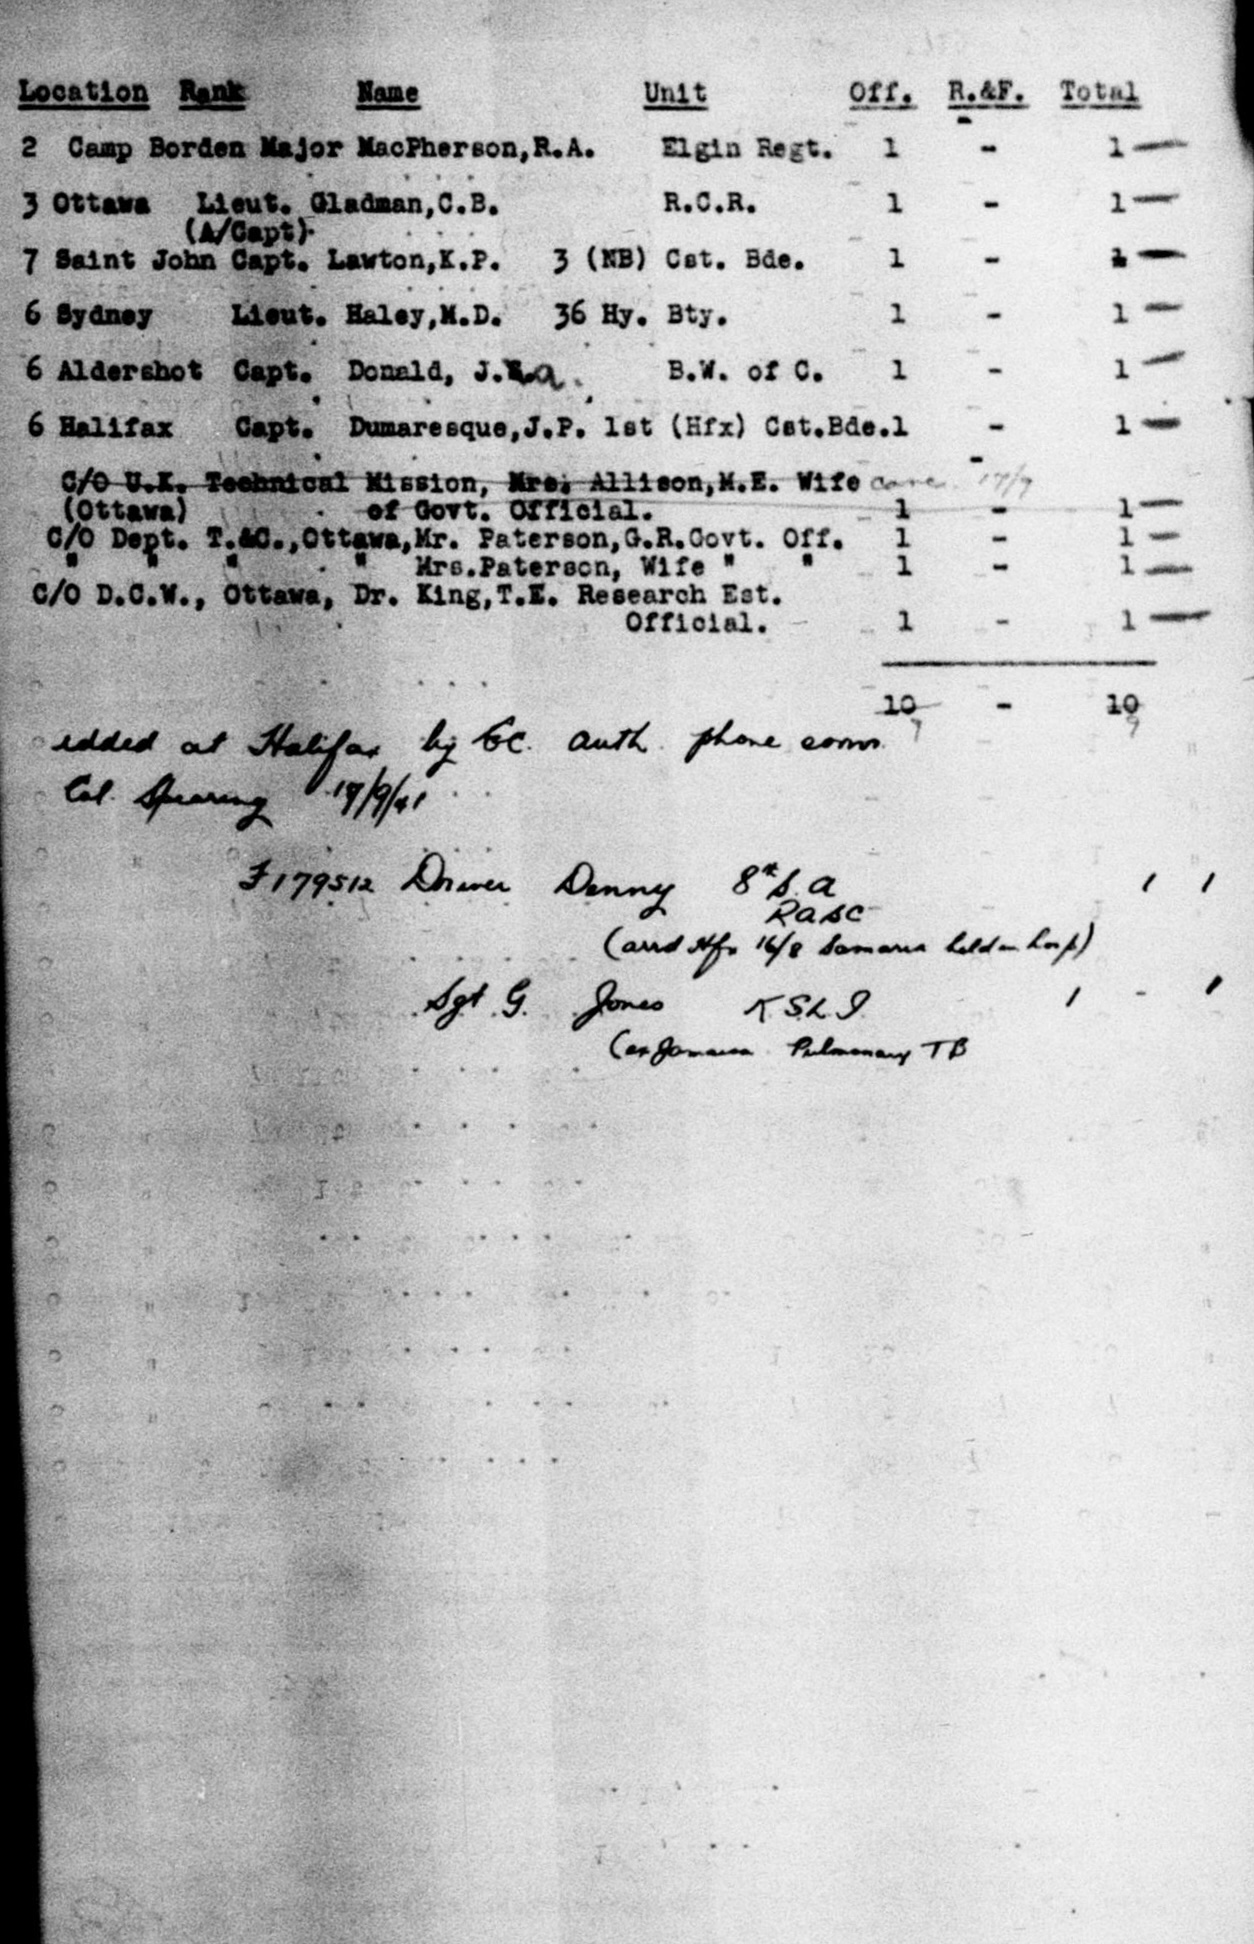 Location Rank Name Unit Off. R.&F. Total
2 Camp Borden Major MacPherson,R.A. Elgin Regt. 1 - 1 —
3 Ottawa Lieut. Gladman,C.B. R.C.R. 1 - 1 —
(A/Capt)
7 Saint John Capt. Lawton,K.P. 3 (NB) Cst. Bde. 1 - 1 —
6 Sydney Lieut. Haley,M.D. 36 Hy. Bty. 1 - 1 —
6 Aldershot Capt. Donald, J. a. B.W. of C. 1 - 1 —
6 Halifax Capt. Dumaresque,J.P. 1st (Hfx) Cst.Bde.1 - 1 —
C/O U.K. Technical Mission, Mrs. Allison,M.E. Wife canc 17/9
(Ottawa) of Govt. Official. 1 - 1 —
C/O Dept. T.&C.,Ottawa,Mr. Paterson,G.R.Govt. Off. 1 - 1 —
" " " " Mrs.Paterson, Wife " " 1 - 1 —
C/O D.C.W., Ottawa, Dr. King,T.E. Research Est.
Official. 1 - 1 —
10 - 10
9 9
added at Halifax by EC. auth. phone conv.
Col. Spearing 17/9/41
179512 Driver Denny 8th S.A
RASC 1 1
(arrd Hfx 16/8 Samaria held in hosp)
Sgt G. Jones KSLI 1 - 1
(ex Jamaica Pulmonary TB